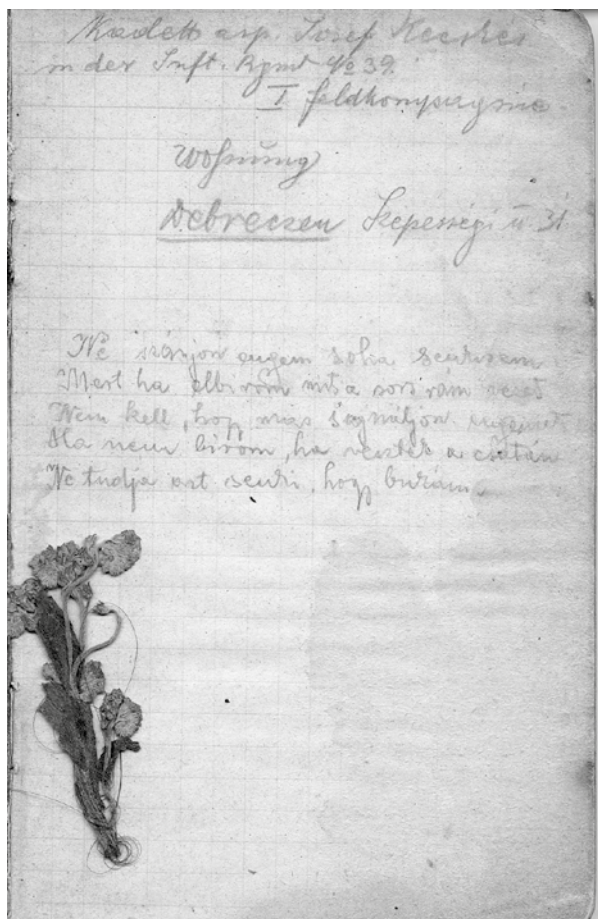 Kadett asp. Josef Kecskés
in der Inft. Rgmt No 39.
I feldkompagnie
Wohnung
Debreczen Szepességi u 31
Ne szánjon engem soha senkisem
Mert ha elbirom mit a sors rám
Nem kell, hogy más sajnáljon engemet
Ha nem birom, ha vesztek a csatán
Ne tudja azt senki, hogy